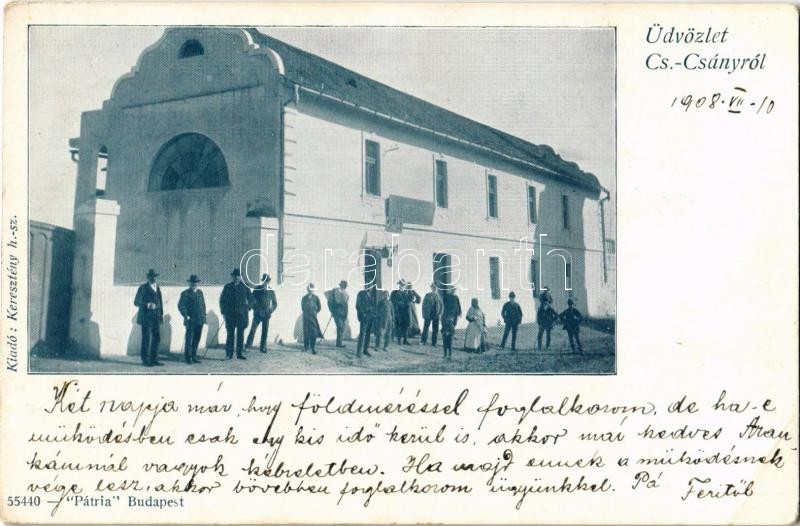 Üdvözlet
Cs.-Csányról
1908. VII-10
Kiadó: Keresztény h.-sz.
darabanth
Két napja már, hogy földméréssel foglalkozom, de ha e
működésben csak egy kis idő kerül is, akkor már kedves Aran-
kámmal vagyok képzeletben. Ha majd ennek a működésnek
vége lesz, akkor bővebben foglalkozom ügyünkkel. Pá
Feritől
55440 – "Pátria" Budapest